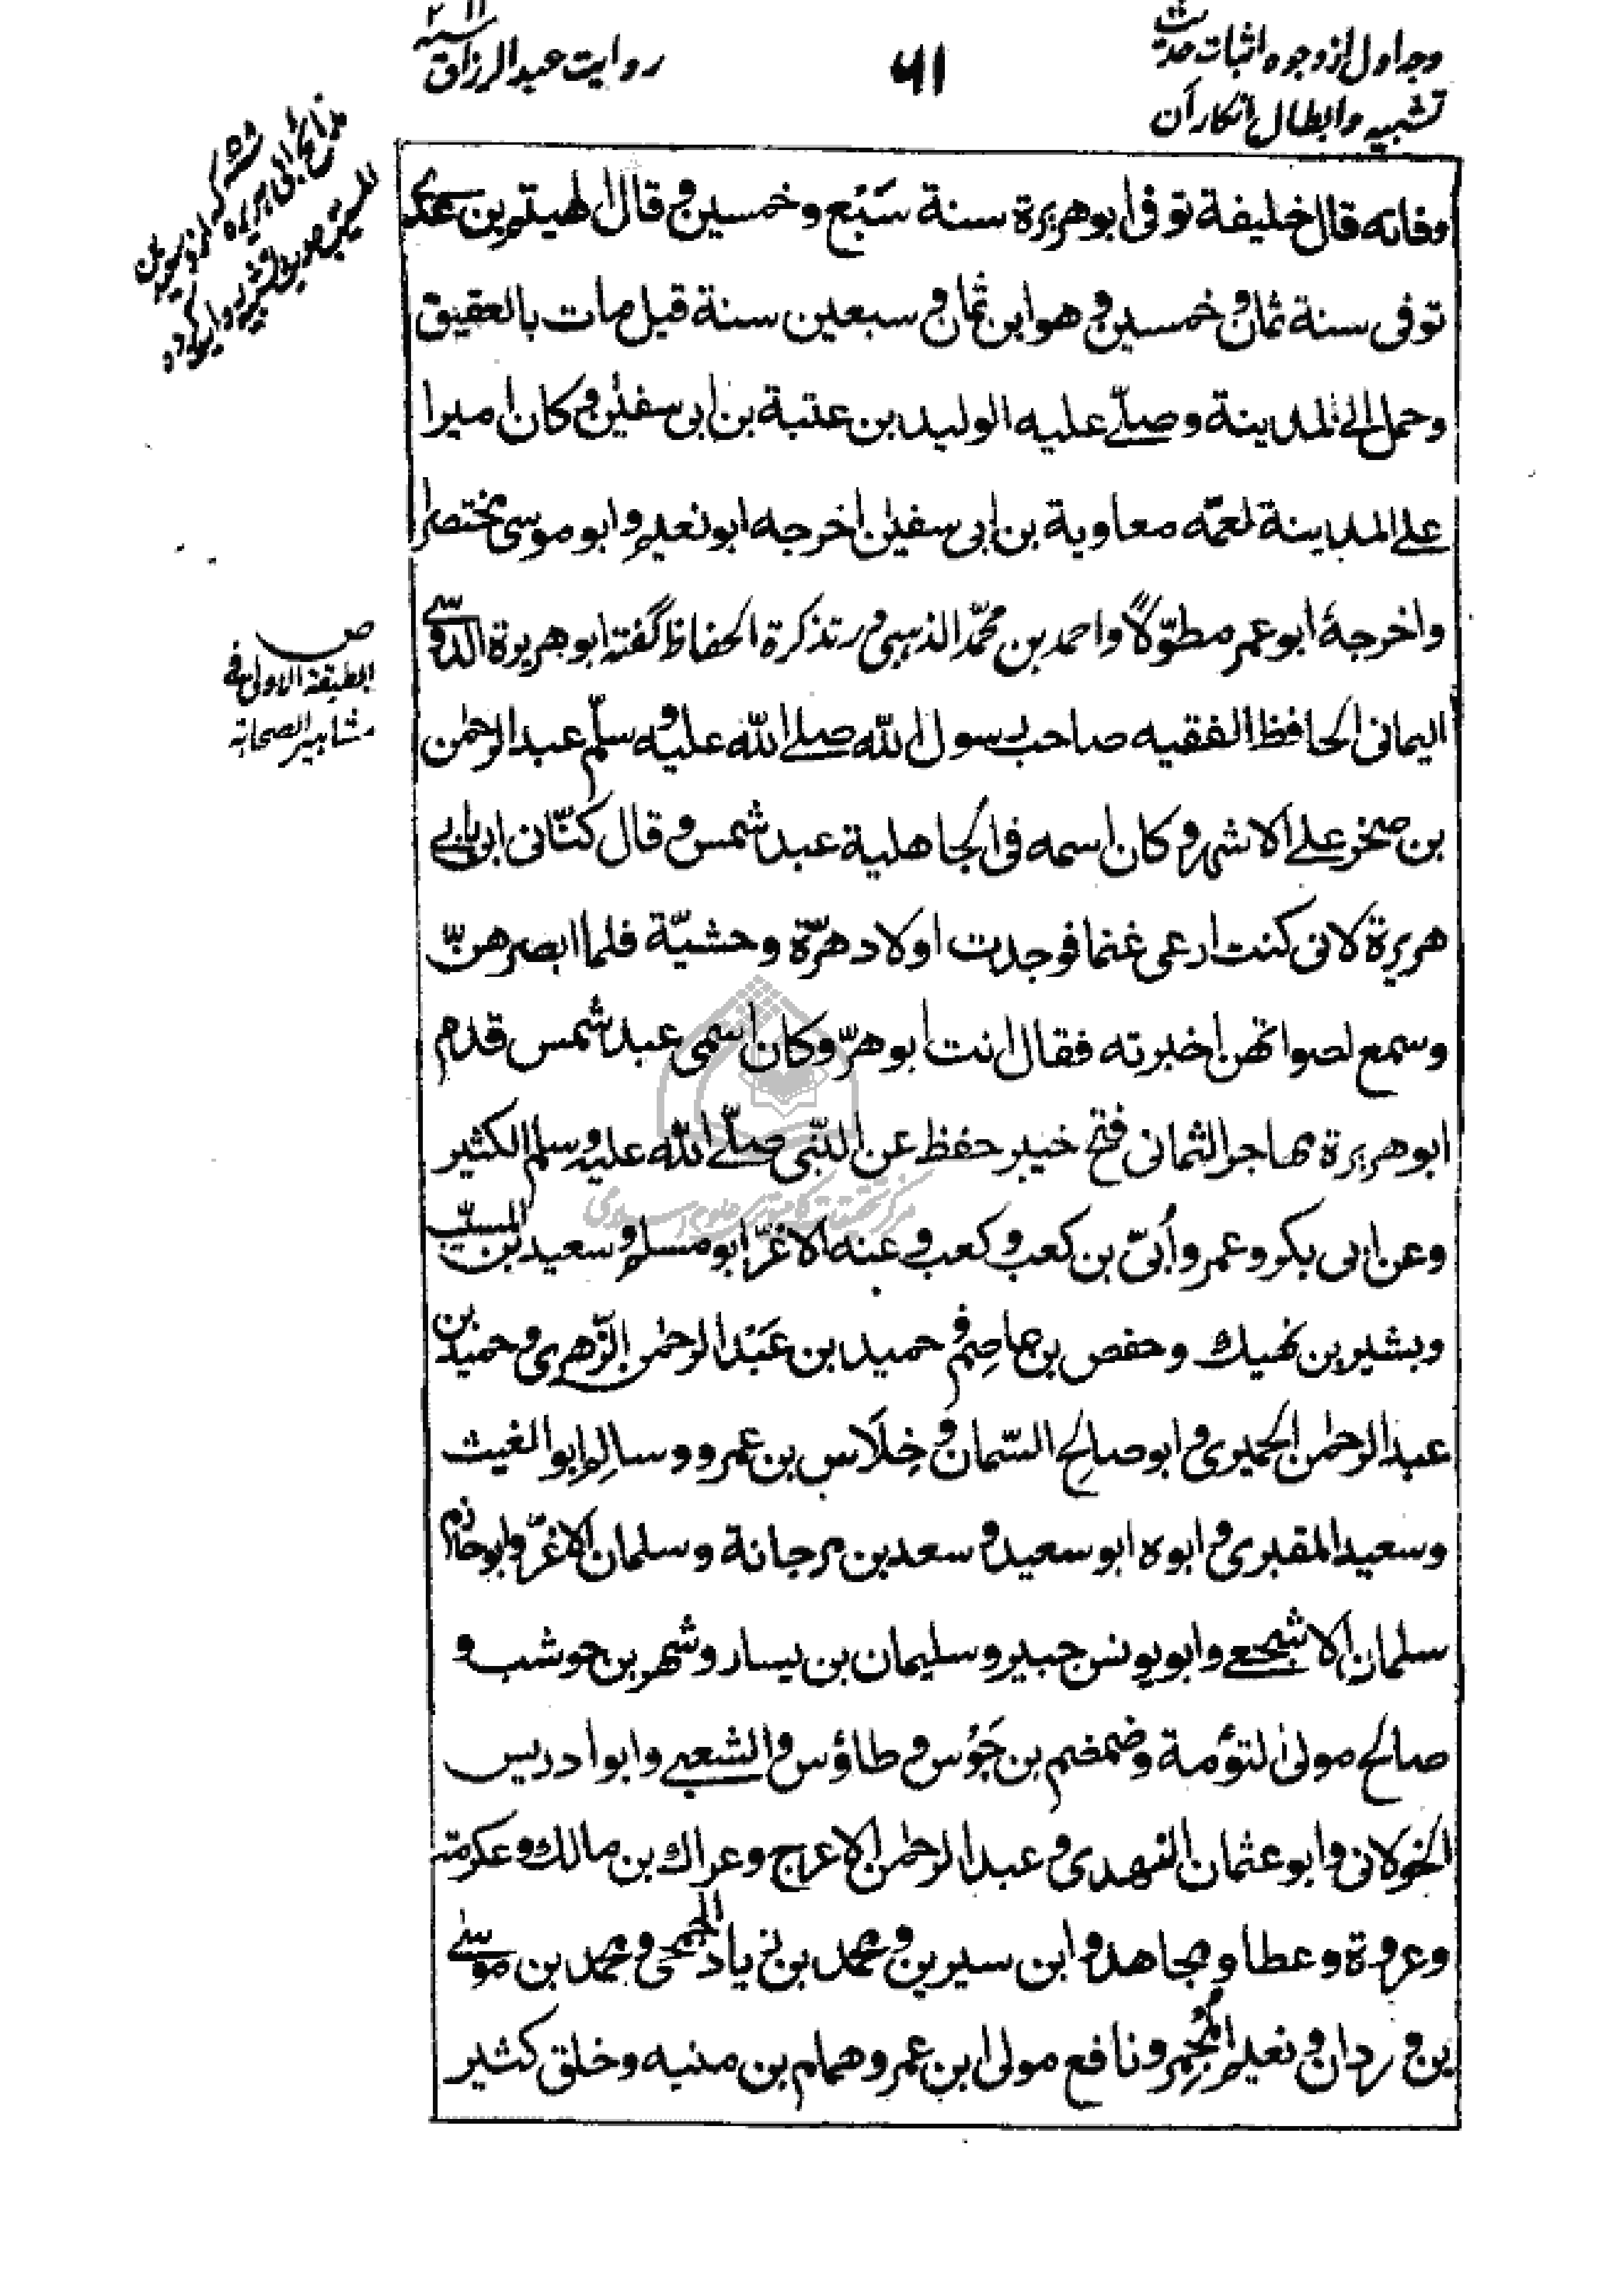 وجه اول از وجوه اثبات حدیث
تشبیه و ابطال انکار آن
۶۱
روایت عبدالرزاق
وفاته قال خليفة توفى ابو هريرة سنة سَبْع وخمسين و قال الهيثم بن عدى
توفى سنة ثمان و خمسين و هو ابن ثمان و سبعين سنة قيل مات بالعقيق
وحمل الى المدينة وصلّى عليه الوليد بن عتبة بن ابى سفيٰن و كان اميرا
على المدينة لعمّه معاوية بن ابى سفيٰن اخرجه ابو نعيم و ابو موسى مختصرا
واخرجهٔ ابو عمر مطوّلاً واحمد بن محمّد الذهبى در تذكرة الحفاظ گفته ابو هريرة الدّوسى
اليمانى الحافظ الفقيه صاحب رسول الله صلى الله عليه و سلّم عبد الرحمٰن
بن صخر على الاشهر و كان اسمه فى الجاهلية عبد شمس و قال كنّانى ابى بابى
هريرة لانى كنت ارعى غنما فوجدت اولاد هرّة وحشيّة فلما ابصرهنّ
وسمع اصواتهن اخبرته فقال انت ابو هرّ وكان اسمى عبد شمس قدم
ابو هريرة مهاجرا لثمانى فتح خيبر حفظ عن النّبى صلّى الله عليه و سلم الكثير
وعن ابى بكر و عمر و اُبىّ بن كعب و كعب و عنه الاغرّ ابو مسلم و سعيد بن المسيّب
وبشير بن نهيك وحفص بن عاصم و حميد بن عَبْد الرحمٰن الزّهرى و حميد بن
عبد الرحمٰن الحميرى و ابو صالح السّمان و خِلَاس بن عمرو و سالم ابو الغيث
وسعيد المقبرى و ابوه ابو سعيد و سعد بن مرجانة و سلمان الاغرّ و ابو حازم
سلمان الاشجعى و ابو يونس جبير و سليمان بن يسار و شهر بن حوشب و
صالح مولىٰ التوٴمة و ضمضم بن جَوْس و طاؤس و الشعبى و ابو ادريس
الخولانى و ابو عثمان النهدى و عبد الرحمٰن الاعرج و عراك بن مالك و عكرمة
و عروة و عطا و مجاهد و ابن سيرين و محمد بن زياد الجمحى و محمد بن موسىٰ
بن وردان و نعيم المُجْمِر و نافع مولى ابن عمر و همام بن منبه و خلق كثير
ص
الطبقة الاولى فى
مشاهير الصحابة